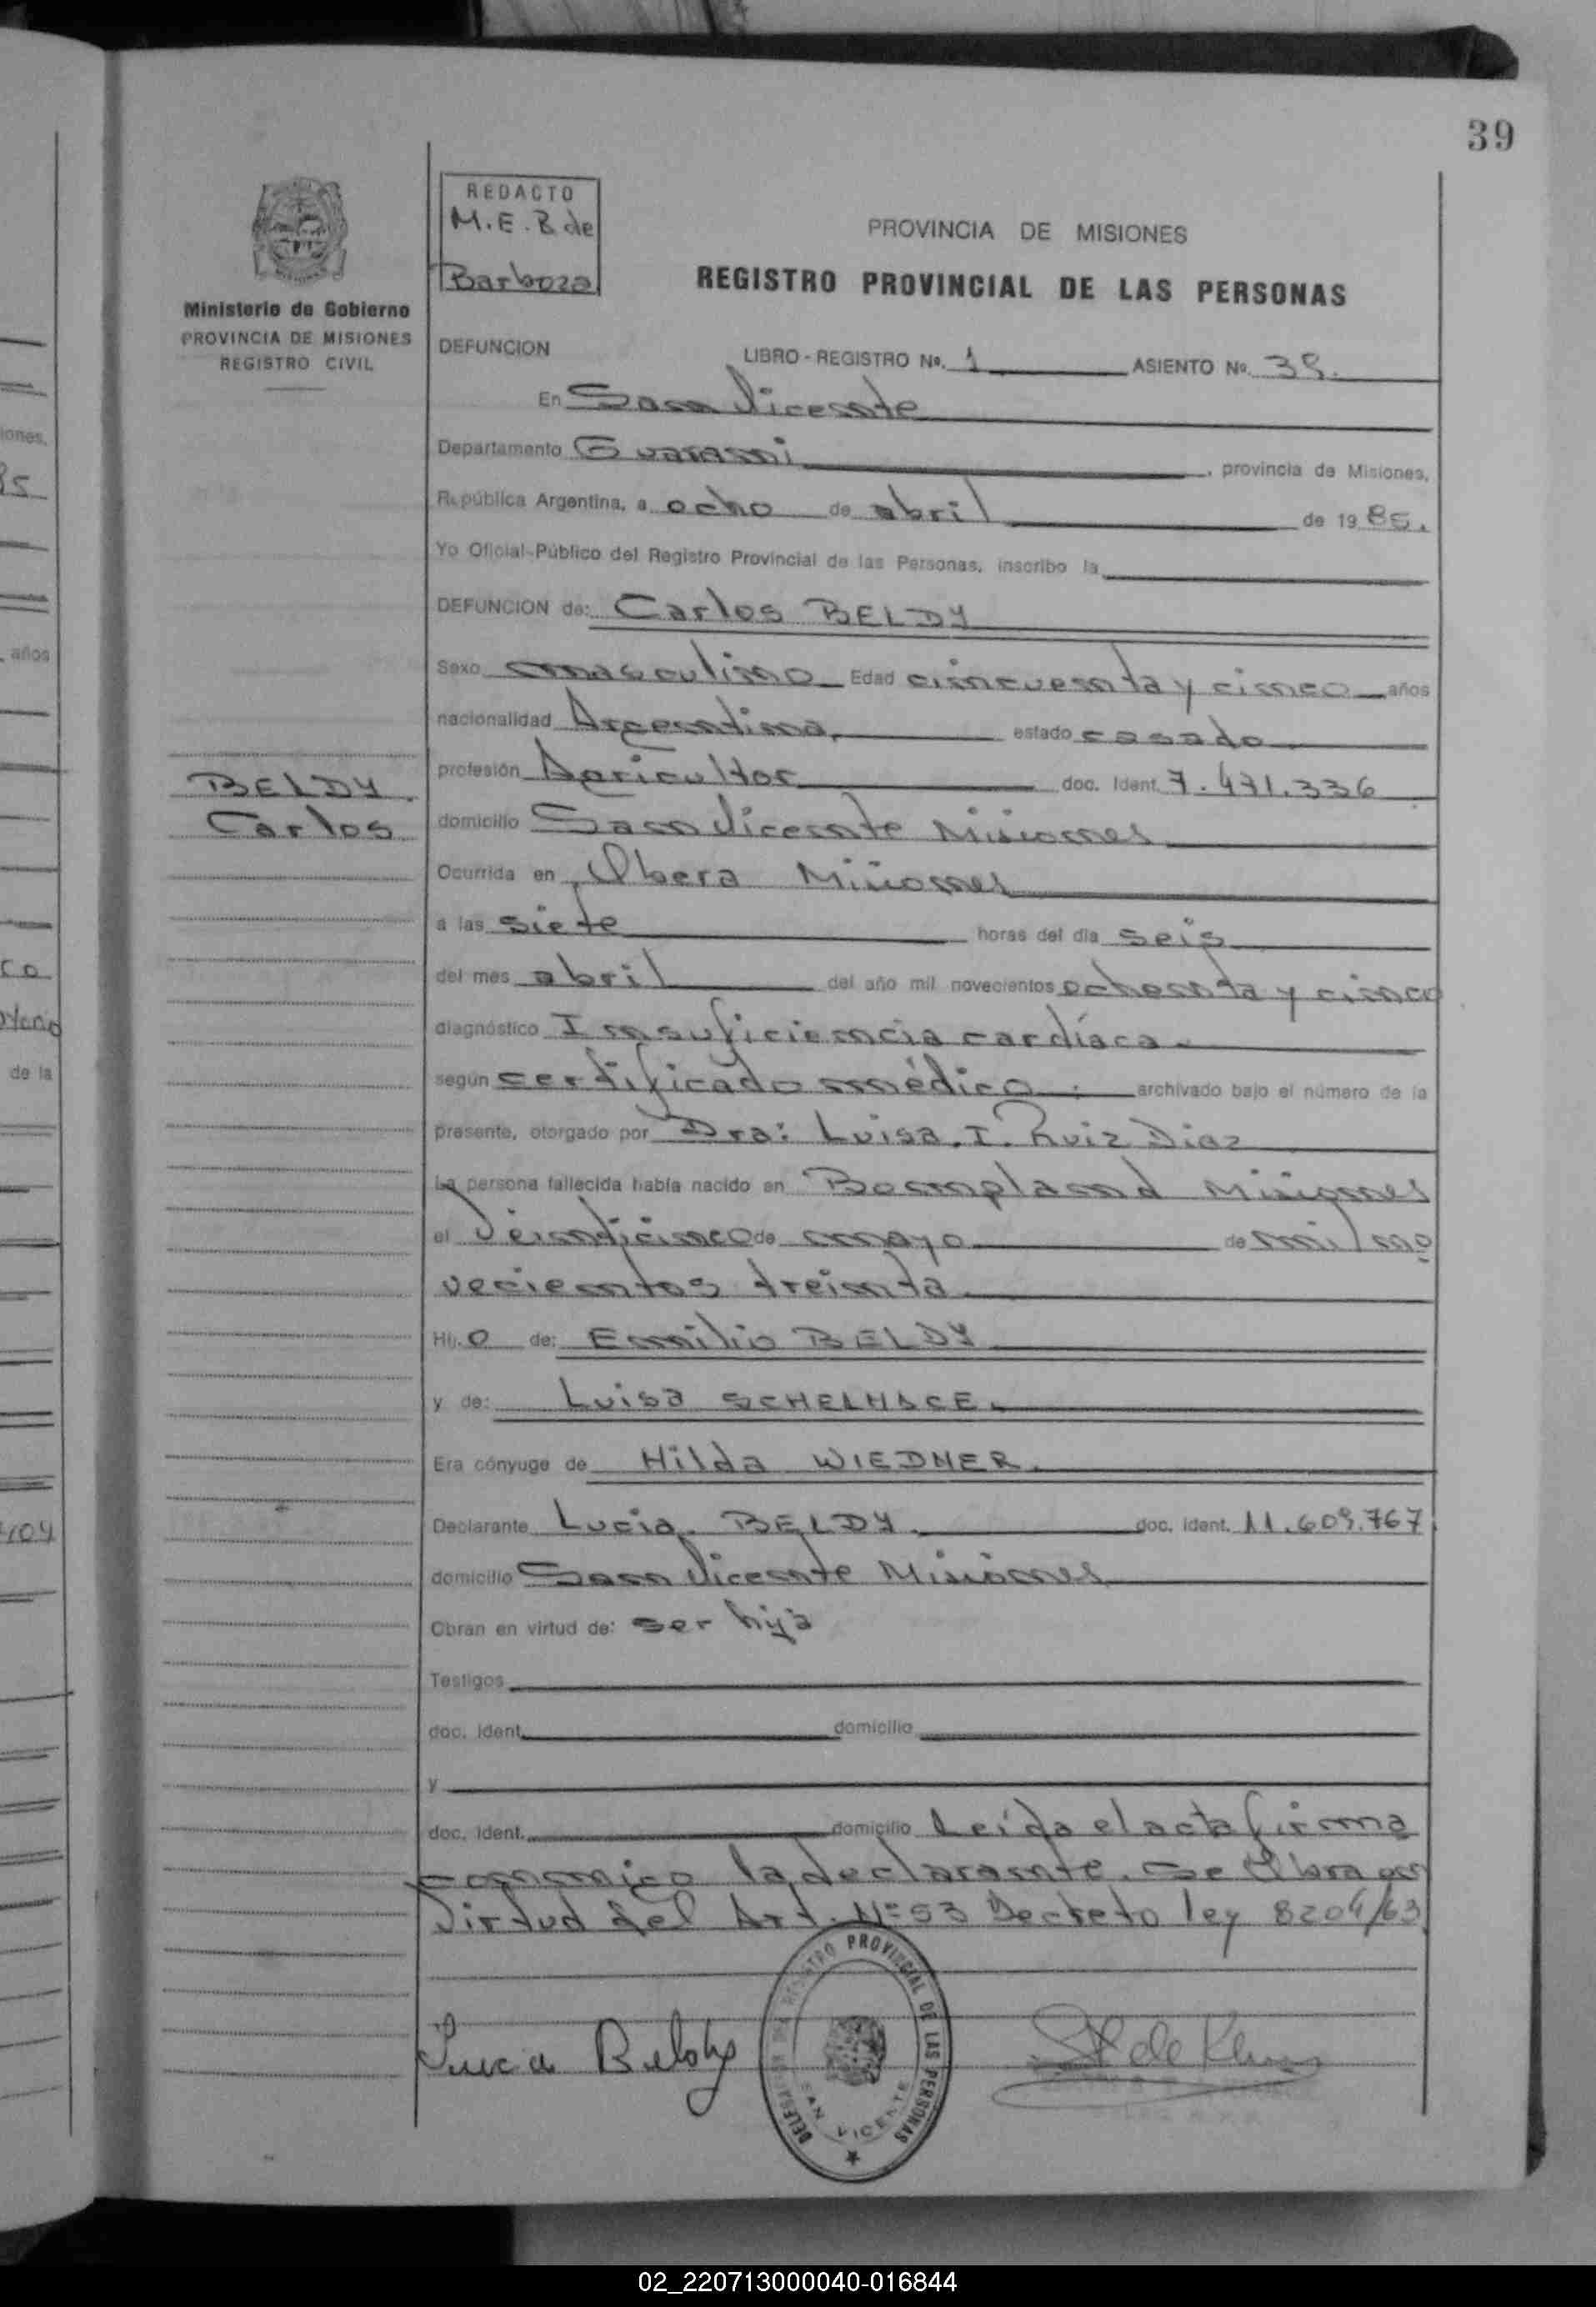 39
REDACTO
M.E.B de
Barboza
PROVINCIA DE MISIONES
REGISTRO PROVINCIAL DE LAS PERSONAS
Ministerio de Gobierno
PROVINCIA DE MISIONES
REGISTRO CIVIL
DEFUNCION LIBRO - REGISTRO Nº. 1 ASIENTO Nº. 39.
En San Vicente
Departamento Guarani, provincia de Misiones,
República Argentina, a ocho de abril de 1985.
Yo Oficial Público del Registro Provincial de las Personas, inscribo la
DEFUNCION de: Carlos BELDY
Sexo masculino Edad cincuenta y cinco años
nacionalidad Argentina, estado casado
profesión Agricultor doc. Ident. 7.471.336
BELDY
Carlos
domicilio San Vicente Misiones
Ocurrida en Obera Misiones
a las siete horas del día seis
del mes abril del año mil novecientos ochenta y cinco
diagnóstico Insuficiencia cardíaca.
según certificado médico. archivado bajo el número de la
presente, otorgado por Dra: Luisa. I. Ruiz Diaz
La persona fallecida había nacido en Bonpland Misiones
el Veinticinco de mayo de mil no
vecientos treinta
Hij.o de: Emilio BELDY
y de: Luisa SCHELHACE.
Era cónyuge de Hilda WIEDMER.
Declarante Lucia. BELDY. doc. ident. 11.609.767
domicilio San Vicente Misiones
Obran en virtud de: ser hija
Testigos
doc. ident. domicilio
y
doc. ident. domicilio Leída el acta firma
conmigo la declarante. Se Obra en
Virtud del Art. Nº 53 Decreto ley 8204/63
DELEGACION REGISTRO PROVINCIAL DE LAS PERSONAS
SAN VICENTE
Lucia Beldy
02_220713000040-016844